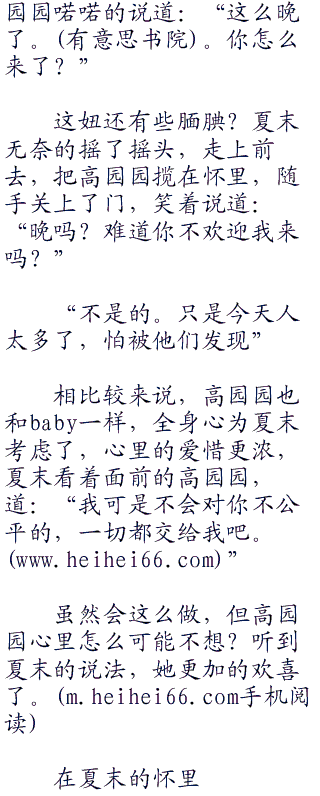 园园喏喏的说道：“这么晚
了。(有意思书院)。你怎么
来了？”
这妞还有些腼腆？夏末
无奈的摇了摇头，走上前
去，把高园园揽在怀里，随
手关上了门，笑着说道：
“晚吗？难道你不欢迎我来
吗？”
“不是的。只是今天人
太多了，怕被他们发现”
相比较来说，高园园也
和baby一样，全身心为夏末
考虑了，心里的爱惜更浓，
夏末看着面前的高园园，
道：“我可是不会对你不公
平的，一切都交给我吧。
(www.heihei66.com)”
虽然会这么做，但高园
园心里怎么可能不想？听到
夏末的说法，她更加的欢喜
了。(m.heihei66.com手机阅
读)
在夏末的怀里